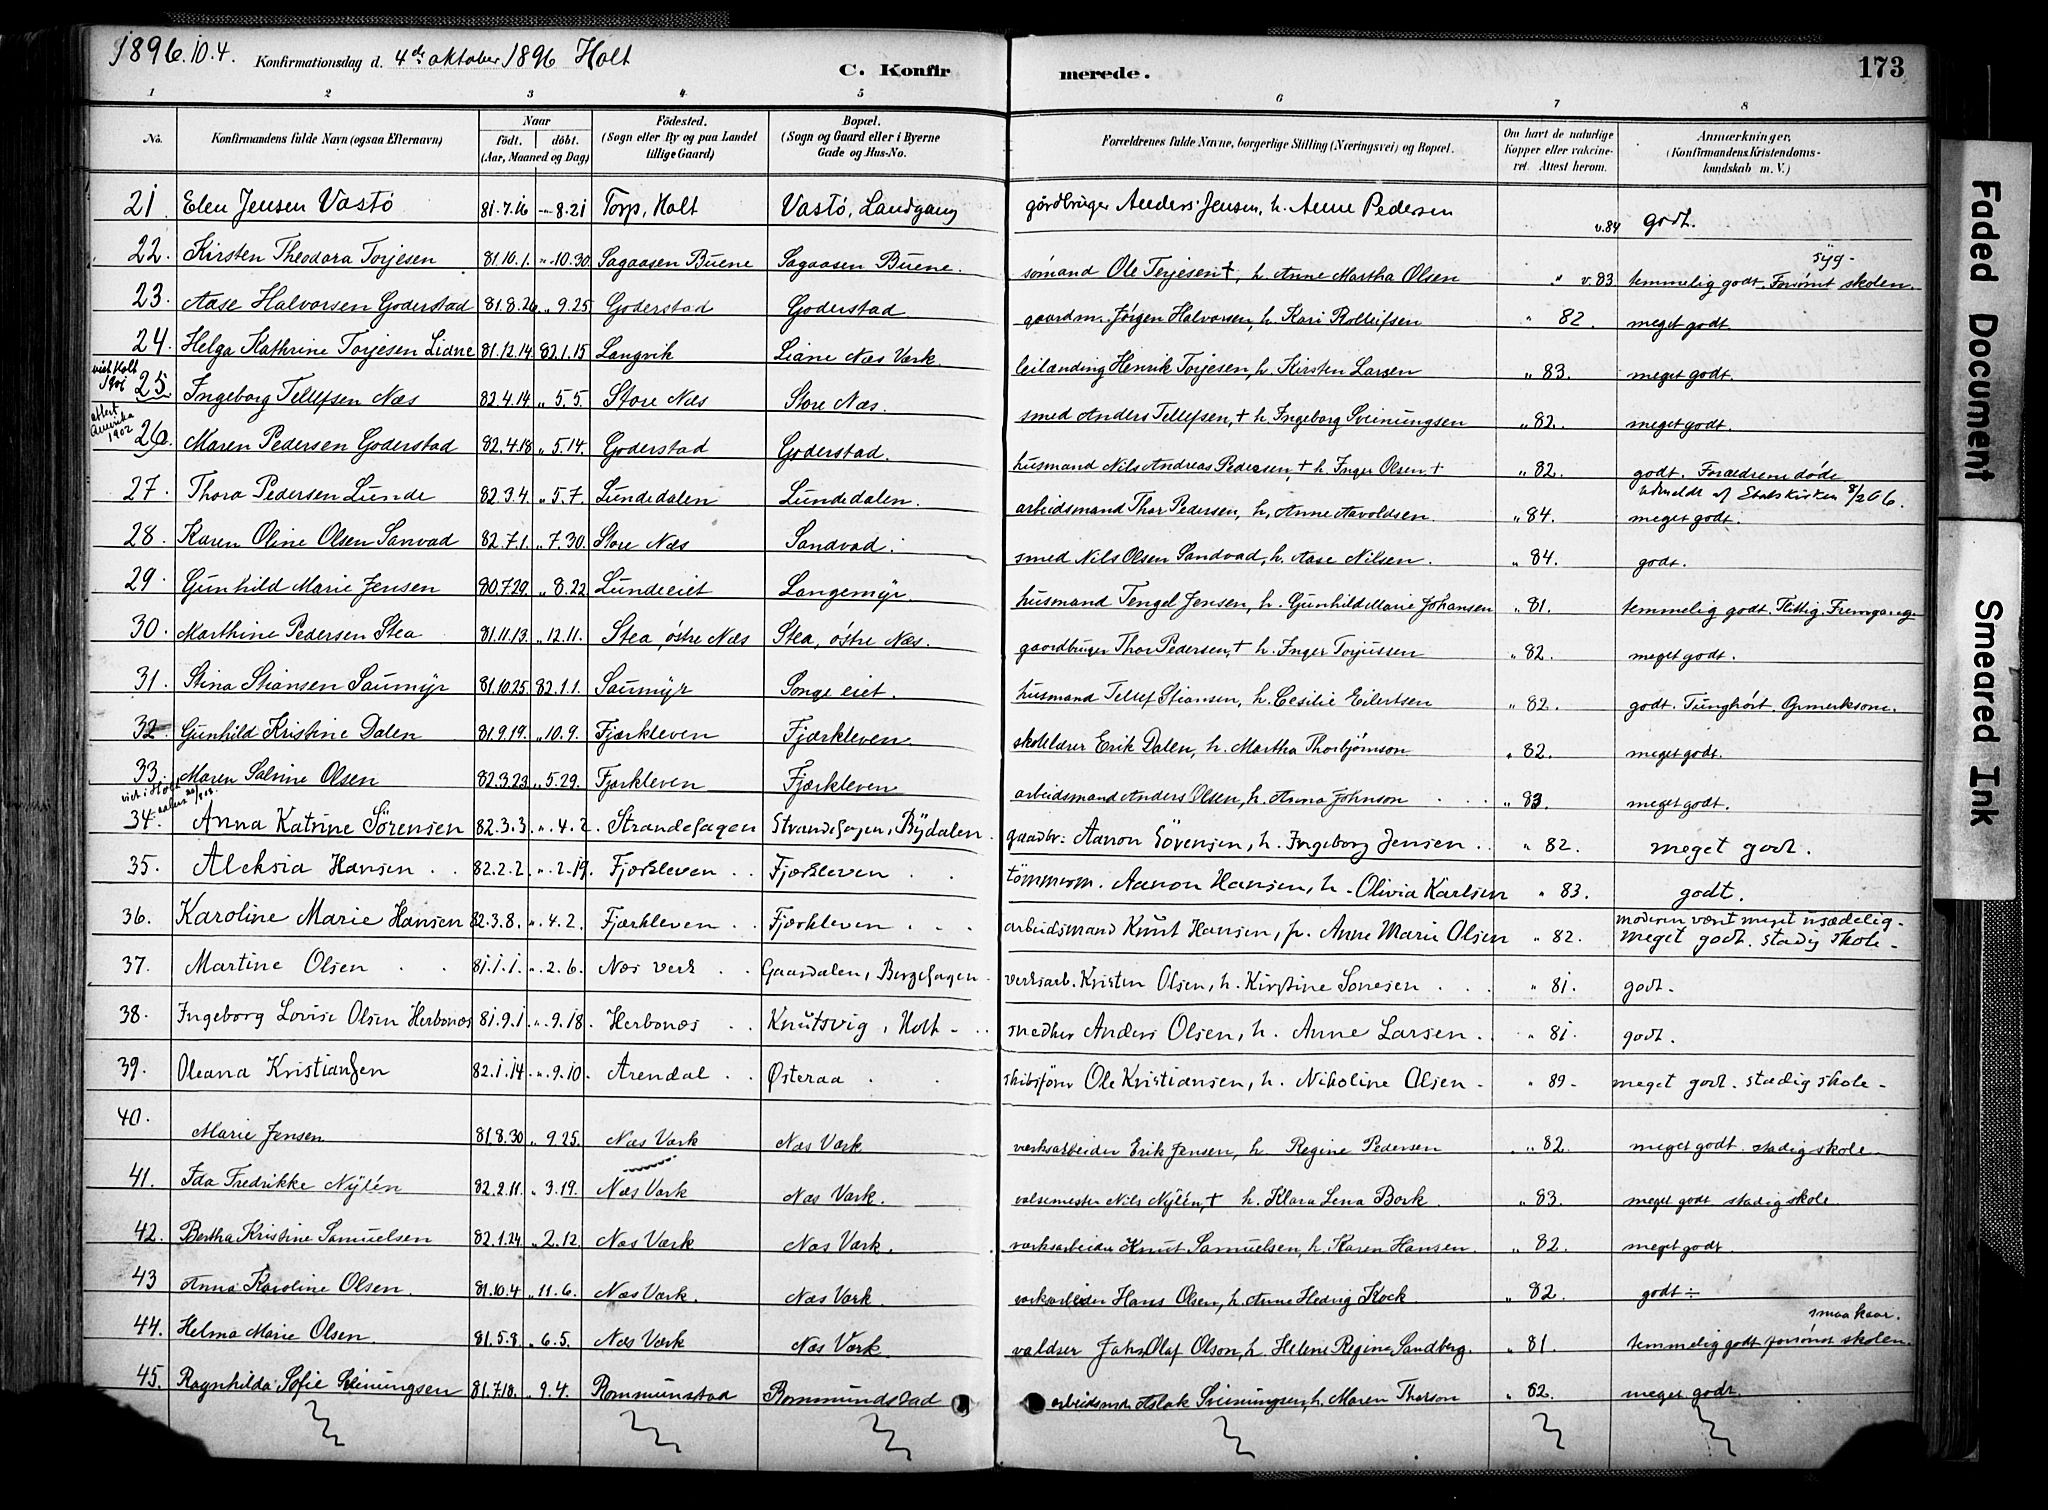 1896.10.4. Konfirmationsdag d. 4de oktober 1896 Holt
C. Konfirmerede. 173
1 2 3 4 5 6 7 8
No. | Konfirmandens fulde Navn (ogsaa Efternavn) | Naar født. døbt. (Aar, Maaned og Dag) | Fødested. (Sogn eller By og paa Landet tillige Gaard) | Bopæl. (Sogn og Gaard eller i Byerne Gade og Hus-No. | Forældrenes fulde Navne, borgerlige Stilling (Næringsvei) og Bopæl. | Om havt de naturlige Kopper eller vakcineret. Attest herom. | Anmærkninger, (Konfirmandens Kristendomskundskab m. V.)
21 | Elen Jensen Vastø | 81.7.16 | 8.21 | Torp, Holt | Vastø, Landgang | gårdbruger Anders Jensen, h. Anne Pedersen | v.84 | godt.
22. | Kirsten Theodora Torjesen | 81.10.1. | " 10.30. | Sagaasen Buene | Sagaasen Buene. | sømand Ole Terjesen †, h. Anne Martha Olsen | " v.83 | temmelig godt. Forsømt skolen. syg-
23. | Aase Halvorsen Goderstad | 81.8.26 | " 9.25 | Goderstad | Goderstad | gaardm. Jørgen Halvorsen, h. Kari Rolleifsen | " 82. | meget godt
24. | Helga Kathrine Torjesen Liane | 81.12.14 | 82.1.15 | Langvik | Liane Næs Værk. | leilænding Henrik Torjesen, h. Kirsten Larsen | " 83. | meget godt.
viet Holt 1901
25. | Ingeborg Tellefsen Næs | 82.4.14 | " 5.5. | Store Næs | Store Næs. | smed Anders Tellefsen, † h. Ingeborg Sveinungsen | " 82. | meget godt.
attest Amerika 1902
26. | Maren Pedersen Goderstad | 82.4.18 | " 5.14. | Goderstad | Goderstad. | husmand Nils Andreas Pedersen, † h. Inger Olsen † | " 82. | godt. Forældrene døde
27. | Thora Pedersen Lunde | 82.3.4. | " 5.7. | Lundedalen | Lundedalen. | arbeidsmand Thor Pedersen, h. Anne Aavoldsen. | " 84. | udmeldt af Statskirken 8/2 06. meget godt.
28. | Karen Oline Olsen Sanvad | 82.7.1. | " 7.30. | Store Næs | Sandvad. | smed Nils Olsen Sandvad, h. Aase Nilsen. | " 84. | godt.
29 | Gunhild Marie Jensen | 80.7.29. | " 8.22. | Lundeeiet | Langemyr. | husmand Tengel Jensen, h. Gunhild Marie Johansen | " 81. | temmelig godt. Flittig. Fremgang
30. | Marthine Pedersen Stea | 81.11.13. | " 12.11. | Stea, østre Næs | Stea, østre Næs. | gaardbruger Thor Pedersen, † h. Inger Torjussen | " 82. | meget godt.
31. | Stina Stiansen Saumyr | 81.10.25. | 82.1.1. | Saumyr | Songe eiet. | husmand Tellef Stiansen, h. Cesilie Eilertsen | " 82. | godt. Tunghørt. Opmerksom.
32 | Gunhild Kristine Dalen | 81.9.19. | " 10.9. | Fjærkleven | Fjærkleven. | skolelærer Erik Dalen, h. Martha Thorbjørnson | " 82. | meget godt.
33. | Maren Salvine Olsen | 82.3.23 | " 5.29. | Fjærkleven | Fjærkleven | arbeidsmand Anders Olsen, h. Anna Johnson | " 83. | meget godt.
viet i Holt
34. | Anna Katrine Sörensen | 82.3.3. | " 4.2. | Strandehagen | Strandehagen, Bydalen. | gaardbr. Aanon Sörensen, h. Ingeborg Jensen | " 82. | meget godt.
35. | Aleksia Hansen | 82.2.2. | " 2.19. | Fjærkleven | Fjærkleven | tömmerm. Aanon Hansen, h. Olivia Karlsen | " 83. | godt.
36. | Karoline Marie Hansen | 82.3.8. | " 4.2. | Fjærkleven | Fjærkleven | arbeidsmand Knut Hansen, p. Anne Marie Olsen | " 82. | moderen været meget usædelig. meget godt. stadig skole-
37. | Martine Olsen | 81.1.1. | " 2.6. | Næs verk | Gaardalen, Bergehagen | verksarb. Kristen Olsen, h. Kirstine Sørensen | " 81. | godt.
38. | Ingeborg Lovise Olsen Herbonæs | 81.9.1. | " 9.18. | Herbonæs | Knutsvig, Holt | snedker Anders Olsen, h. Anne Larsen. | " 81. | godt.
39. | Oleana Kristiansen | 82.1.14. | " 9.10. | Arendal | Østeraa | skibsfører Ole Kristiansen, h. Nikoline Olsen | " 89- | meget godt. stadig skole-
40. | Marie Jensen | 81.8.30 | " 9.25. | Næs Værk | Næs Værk | værksarbeider Erik Jensen, h. Regine Pedersen | " 82. | meget godt. stadig skole.
41. | Ida Fredrikke Nylén | 82.2.11. | " 3.19. | Næs Værk | Næs Værk. | valsemester Nils Nylén, † h. Klara Lena Bork. | " 83. | meget godt stadig skole
42. | Bertha Kristine Samuelsen | 82.1.24. | " 2.12. | Næs Værk | Næs Værk. | værksarbeider Knut Samuelsen, h. Karen Hansen. | " 82. | meget godt.
43 | Anna Karoline Olsen. | 81.10.4 | " 11.6. | Næs Værk. | Næs Værk. | værksarbeider Hans Olsen, h. Anne Hedvig Kock | " 82. | godt ÷
44. | Helma Marie Olsen. | 81.5.8. | " 6.5. | Næs Værk | Næs Værk. | valdser Johs. Olaf Olson, h. Helene Regine Sandberg. | " 81. | temmelig godt forsømt skolen. smaa kaar.
45. | Ragnhilda Sofie Sveinungsen | 81.7.10. | " 9.4. | Rommunstad | Rommundstad | arbeidsmd. Aslak Sveinungsen, h. Maren Thorson | " 82. | meget godt.
Faded Document
Smeared Ink